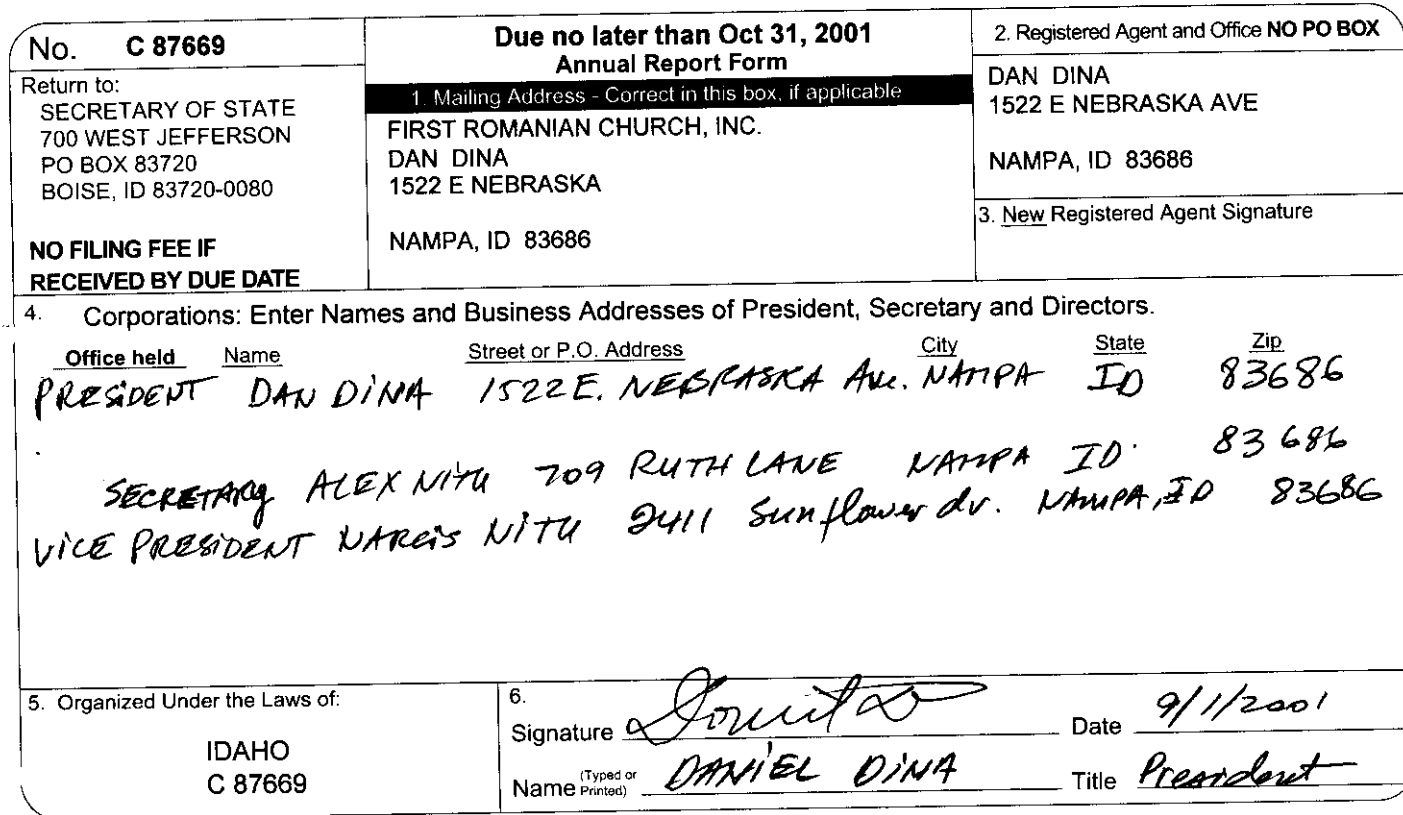 No. C 87669
Return to:
SECRETARY OF STATE
700 WEST JEFFERSON
PO BOX 83720
BOISE, ID 83720-0080
NO FILING FEE IF
RECEIVED BY DUE DATE
Due no later than Oct 31, 2001
Annual Report Form
1. Mailing Address - Correct in this box, if applicable
FIRST ROMANIAN CHURCH, INC.
DAN DINA
1522 E NEBRASKA
NAMPA, ID 83686
2. Registered Agent and Office NO PO BOX
DAN DINA
1522 E NEBRASKA AVE
NAMPA, ID 83686
3. New Registered Agent Signature
4. Corporations: Enter Names and Business Addresses of President, Secretary and Directors.
Office held Name Street or P.O. Address City State Zip
PRESIDENT DAN DINA 1522 E. NEBRASKA Ave. NAMPA ID 83686
SECRETARY ALEX NITU 709 RUTH LANE NAMPA ID. 83686
VICE PRESIDENT NARCIS NITU 2411 Sunflower dr. NAMPA, ID 83686
5. Organized Under the Laws of:
IDAHO
C 87669
6.
Signature Date 9/1/2001
Name (Typed or Printed) DANIEL DINA Title President